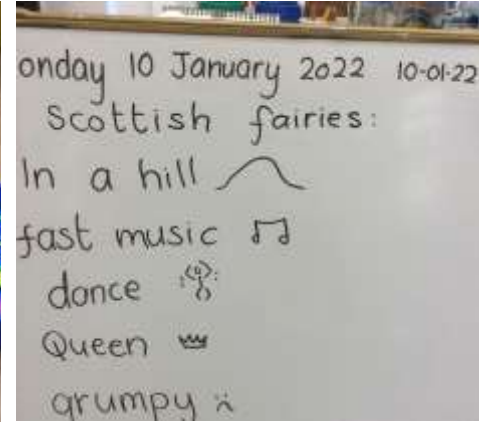 onday 10 January 2022 10-01-22
Scottish fairies:
In a hill
fast music
dance
Queen
grumpy